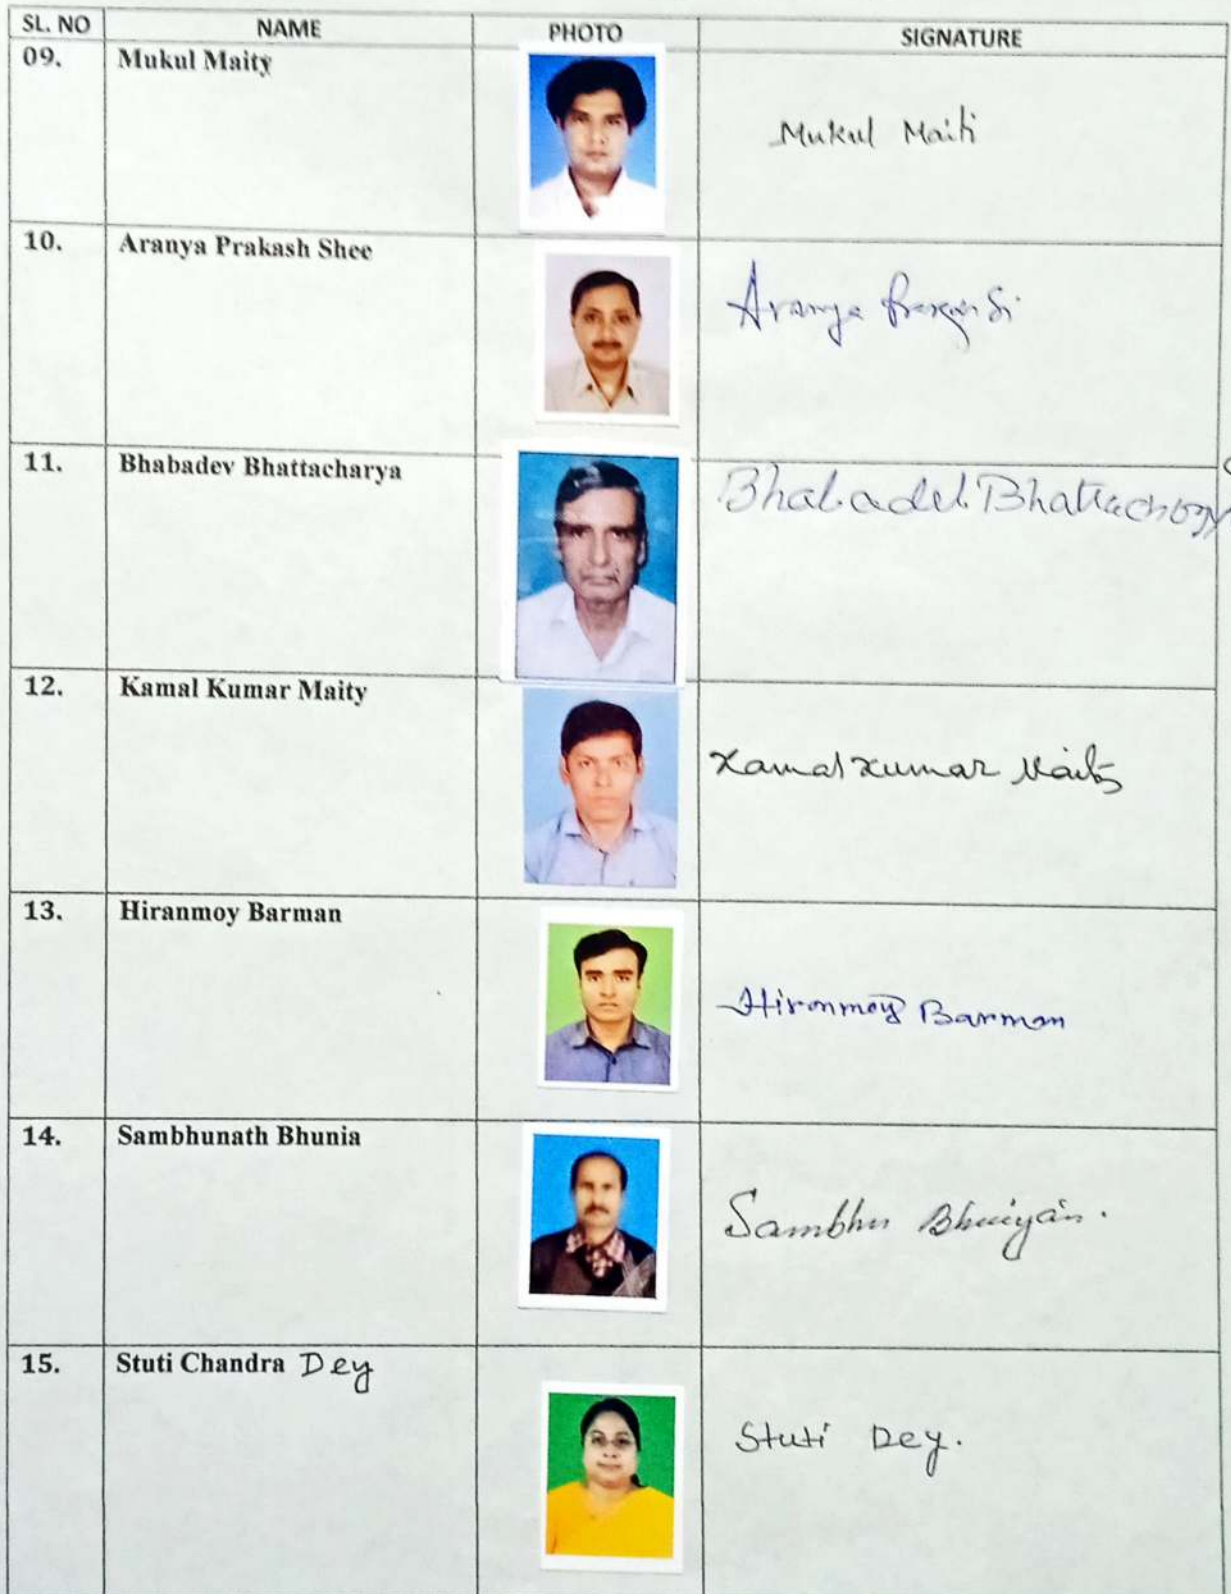 SL. NO NAME PHOTO SIGNATURE
09. Mukul Maity
Mukul Maiti
10. Aranya Prakash Shee
Aranya
11. Bhabadev Bhattacharya
Bhabadeb Bhattacharya
12. Kamal Kumar Maity
Kamal Kumar Maity
13. Hiranmoy Barman
Hiranmoy Barman
14. Sambhunath Bhunia
Sambhu Bhuiyan.
15. Stuti Chandra Dey
Stuti Dey.